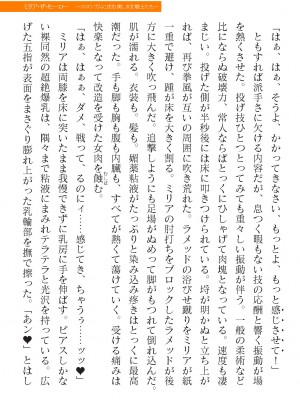 ミリア・ザ・ヒーロー
「はぁ、はぁ。そぉよ、かかってきなさい、もっとよ、もっと感じさせて！」
ともすれば派手さに欠ける内容だが、息つく暇もない技の応酬と響く振動が場
を熱くさせた。投げ技ひとつとってみても重々しい振動が伴う。一般の柔術など
比にならぬ破壊力。常人ならばとっくにひしゃげて肉塊となっている。速度も凄
まじい。投げた側が半秒後には床に叩きつけられている。埒が明かぬと立ち上が
れば、再び拳風が互いの周囲に吹き荒れた。ラメッドの浴びせ蹴りをミリアが紙
一重で避け、踵が床を大きく割る。ミリアの肘打ちをブロックしたラメッドが後
方に大きく吹っ飛んだ。追撃しようにも足場がぬめって脚がもつれて倒れ込んだ。
肌が濡れる。衣装も。髪も。媚薬粘液がたっぷりと染み込み疼きはとっくに最高
潮だった。手も脚も胸も腹も内臓も、すべてが熱くて蕩けていく。受ける痛みは
快楽となって改造を受けた女肉を蝕む。
「はぁ、はぁぁ、ダメ、戦って。るのにィ……感じてき、ちゃうぅ……ッッ♥」
ミリアは両膝を床に突いたまま我慢できずに乳房に手を伸ばす。ピアスしかな
い裸同然の超絶爆乳は、隅々まで粘液にまみれてテラテラと光沢を持っている。広
げた五指が表面をまさぐり膨れ上がった乳輪部を撫で擦った。「あン♥」とはし